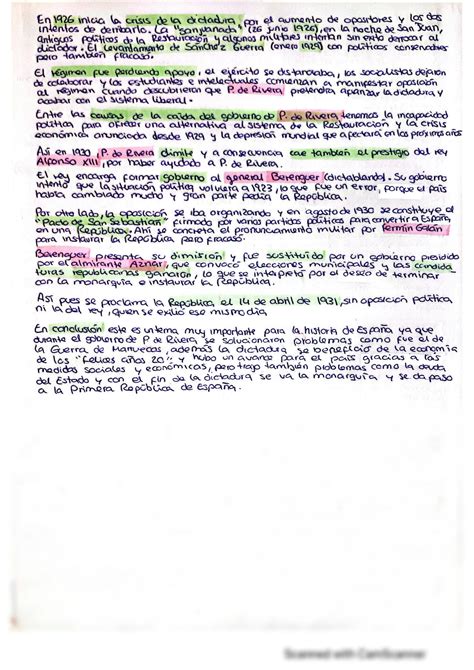 En 1926 inicia la crisis de la dictadura, por el aumento de opositores y los dos
intentos de derribarlo. La "sanjuanada" (26 junio 1926), en la noche de San Juan,
antiguos políticos de la Restauración y algunos militares intentan sin éxito derrocar al
dictador. El levantamiento de Sánchez Guerra (enero 1929) con políticos conservadores
pero también fracasó.
El régimen fue perdiendo apoyo, el ejército se distanciaba, los socialistas dejaron
de colaborar y los estudiantes e intelectuales comienzan a manifestar oposición
al régimen cuando descubrieron que P. de Rivera pretendía afianzar la dictadura y
acabar con el sistema liberal.
Entre las causas de la caída del gobierno de P. de Rivera tenemos la incapacidad
política para ofrecer una alternativa al sistema de la Restauración y la crisis
económica anunciada desde 1929 y la depresión mundial que afectará en los próximos años
Así en 1930, P. de Rivera dimite y a consecuencia cae también el prestigio del rey
Alfonso XIII, por haber ayudado a P. de Rivera.
El rey encarga formar gobierno al general Berenguer (dictablanda). Su gobierno
intentó que la situación política volviera a 1923, lo que fue un error, porque el país
había cambiado mucho y gran parte pedía la República.
Por otro lado, la oposición se iba organizando y en agosto de 1930 se constituye el
"Pacto de San Sebastián" firmado por varios partidos políticos para convertir a España
en una República. Ahí se concretó el pronunciamiento militar por Fermín Galán
para instaurar la República pero fracasó.
Berenguer presenta su dimisión y fue sustituido por un gobierno presidido
por el almirante Aznar, que convocó elecciones municipales y las candida
turas republicanas ganaron, lo que se interpretó por el deseo de terminar
con la monarquía e instaurar la República.
Así pues se proclama la República, el 14 de abril de 1931, sin oposición política
ni la del rey, quien se exilió ese mismo día.
En conclusión este es un tema muy importante para la historia de España ya que
durante el gobierno de P. de Rivera, se solucionaron problemas como fue el de
la Guerra de Marruecos, además la dictadura se benefició de la economía
de los "Felices años 20"; y hubo un avance para el país gracias a las
medidas sociales y económicas, pero trajo también problemas como la deuda
del Estado y con el fin de la dictadura se va la monarquía y se da paso
a la Primera República de España.
Scanned with CamScanner